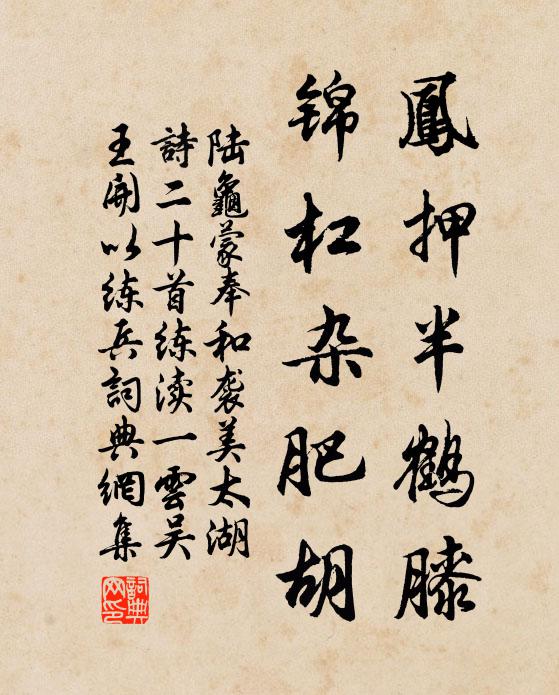 鳳押半鶴膝
锦杠杂肥胡
陆龜蒙奉和袭美太湖
詩二十首练渎一雲吴
王開以练兵詞典網集
詞典网印